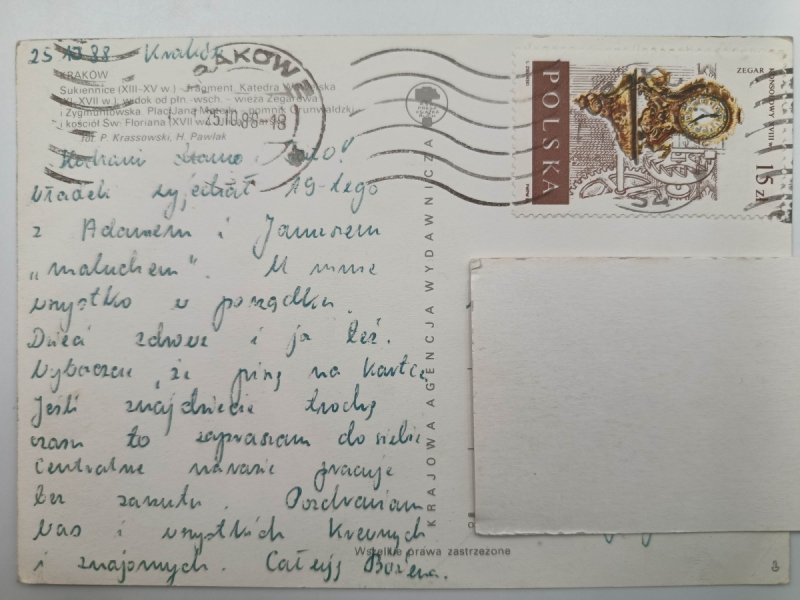 25 10 88 Kraków
KRAKÓW
Sukiennice (XIII-XV w.) fragment, Katedra
XVII w.), widok od płn.-wsch. - wieża Zegarowa
i Zygmuntowska. Plac Jana Matejki - pomnik Grunwaldzki
i kościół Św. Floriana
fot. P. Krassowski, H. Pawlak
KRAKÓW
25.10.88-18
POLSKA
ZEGAR
KONSOLOWY
15 zł
KRAJOWA AGENCJA WYDAWNICZA
Kochani
wyjechał 19-tego
z Adamem i Januszem
„maluchem”. U mnie
wszystko w porządku.
Dzieci zdrowe i ja też.
Wybaczcie że piszę na kartce
Jeśli znajdziecie trochę
czasu to zapraszam do siebie
Centralne narazie pracuje
bez zarzutu. Pozdrawiam
Was i wszystkich krewnych
i znajomych. Całuję Bożena.
Wszelkie prawa zastrzeżone